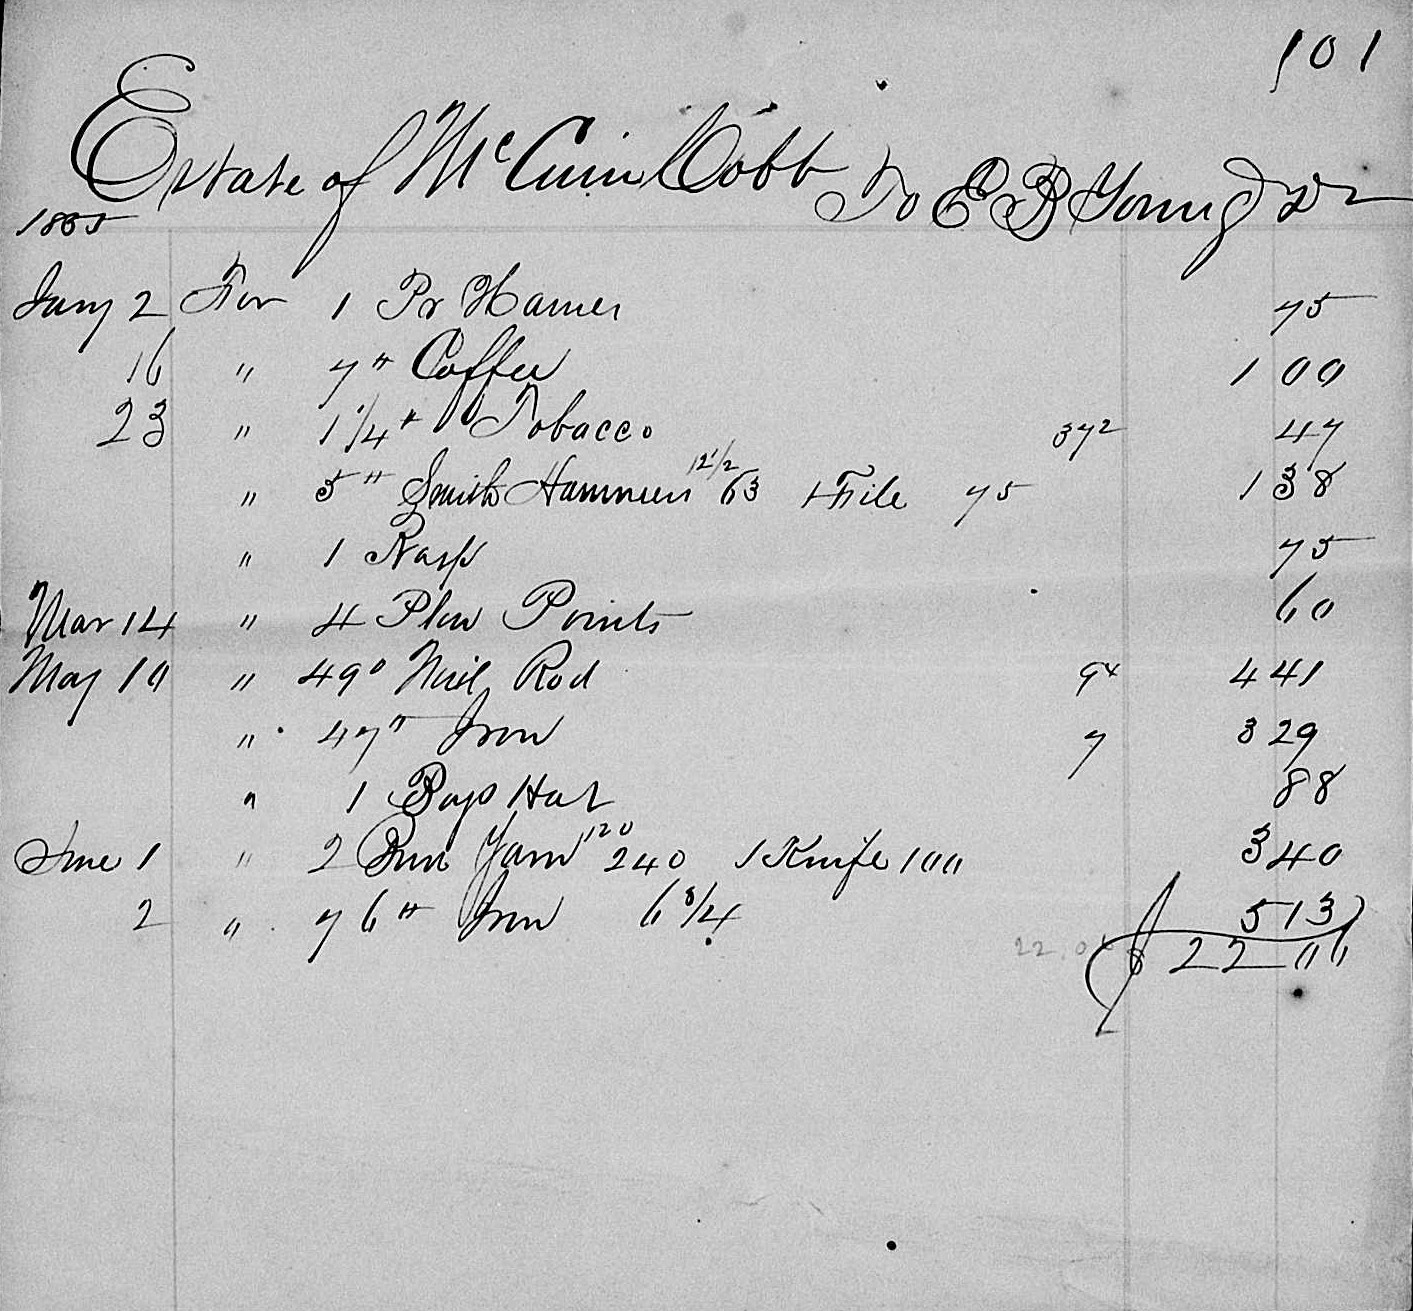 101
Estate of McCuin Cobb To E B Young Dr
1855
Jany 2 For 1 Pr Hames 75
16 " 7 " Coffee 1 00
23 " 1 1/4 " Tobacco 37 2 47
" 5 " Smith Hammers 12 1/2 63 1 File 75 1 38
" 1 Rasp 75
Mar 14 " 4 Plow Points 60
May 10 " 49 " Nail Rod 9 4 41
" 47 " Iron 7 3 29
" 1 Boys Hat 88
June 1 " 2 Bun Yarn 120 240 1 Knife 100 3 40
2 " 76 " Iron 6 3/4 5 13
22.06 $ 22 06